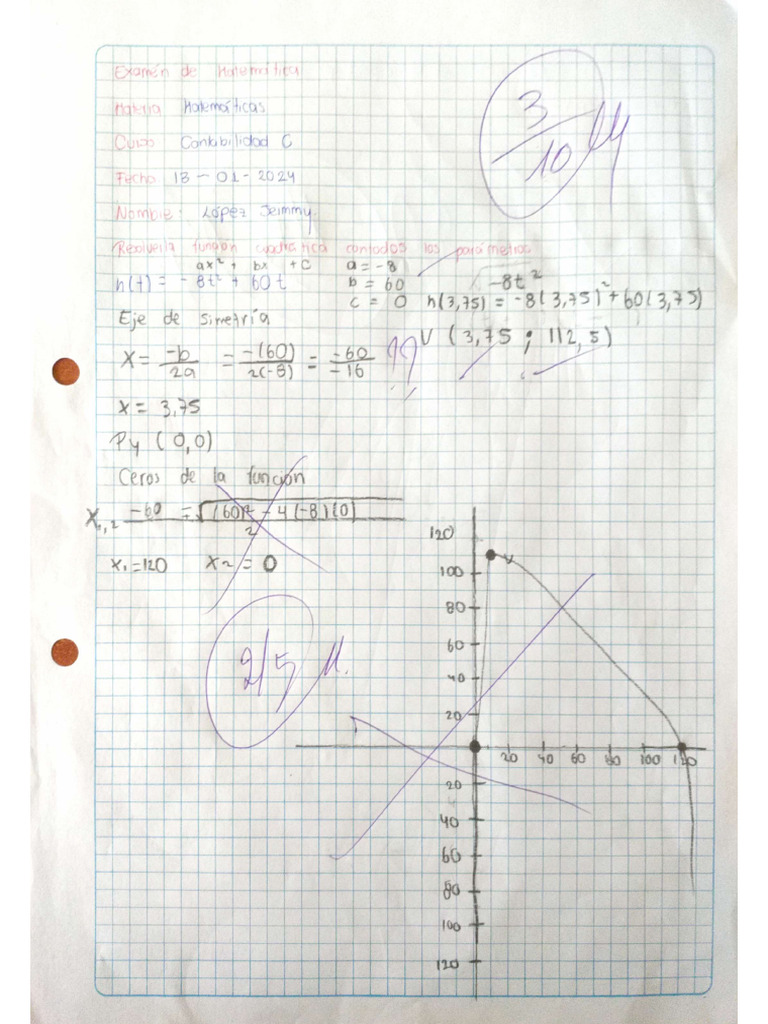 Examén de Matemática
3/10
Materia Matemáticas
Curso Contabilidad C
Fecha 18-01-2024
Nombre: López Jeimmy
Resolver la función cuadrática con todos los parámetros
ax² + bx + c a = -8
h(t) = - 8t² + 60t b = 60 -8t²
c = 0 h(3,75) = -8(3,75)² + 60(3,75)
Eje de Simetría
X = -b/2a = -(60)/2(-8) = -60/-16 V (3,75 ; 112,5)
x = 3,75
Py (0,0)
Ceros de la función
X1,2 -60 = √(60)² - 4(-8)(0) / 2
x1 = 120 x2 = 0
2/5
120
100
80
60
40
20
20 40 60 80 100 120
20
40
60
80
100
120
V